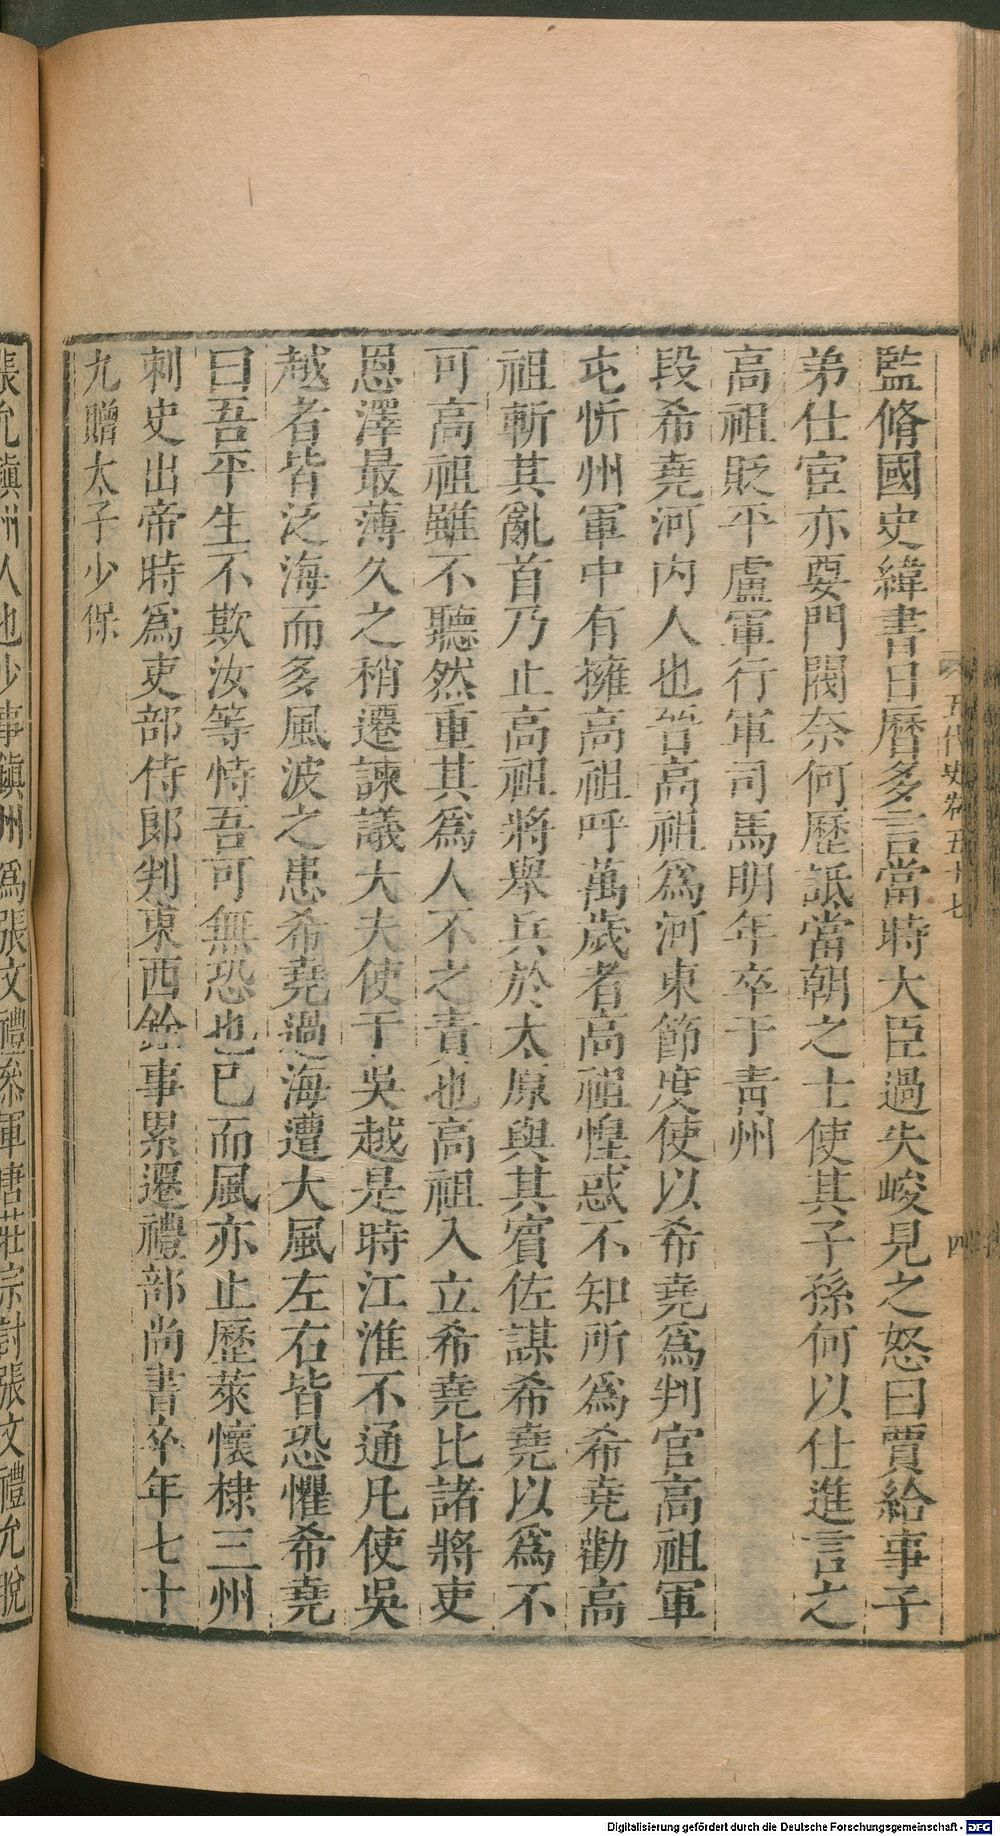 監脩國史緯書日曆多言當時大臣過失峻見之怒曰賈給事子
弟仕宦亦要門閥奈何歷詆當朝之士使其子孫何以仕進言之
高祖貶平盧軍行軍司馬明年卒于青州
段希堯河內人也晉高祖為河東節度使以希堯為判官高祖軍
屯忻州軍中有擁高祖呼萬歲者高祖惶惑不知所為希堯勸高
祖斬其亂首乃止高祖將舉兵於太原與其賓佐謀希堯以為不
可高祖雖不聽然重其為人不之責也高祖入立希堯比諸將吏
恩澤最薄久之稍遷諫議大夫使于吳越是時江淮不通凡使吳
越者皆泛海而多風波之患希堯過海遭大風左右皆恐懼希堯
曰吾平生不欺汝等恃吾可無恐也已而風亦止歷萊懷棣三州
刺史出帝時為吏部侍郎判東西銓事累遷禮部尚書卒年七十
九贈太子少保
五代史卷五十七
四
張允鎮州人也少事鎮州為張文禮參軍唐莊宗討張文禮允脫
Digitalisierung gefördert durch die Deutsche Forschungsgemeinschaft - DFG